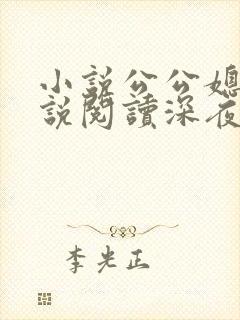 小說公公媳
說閱讀深夜
李光正